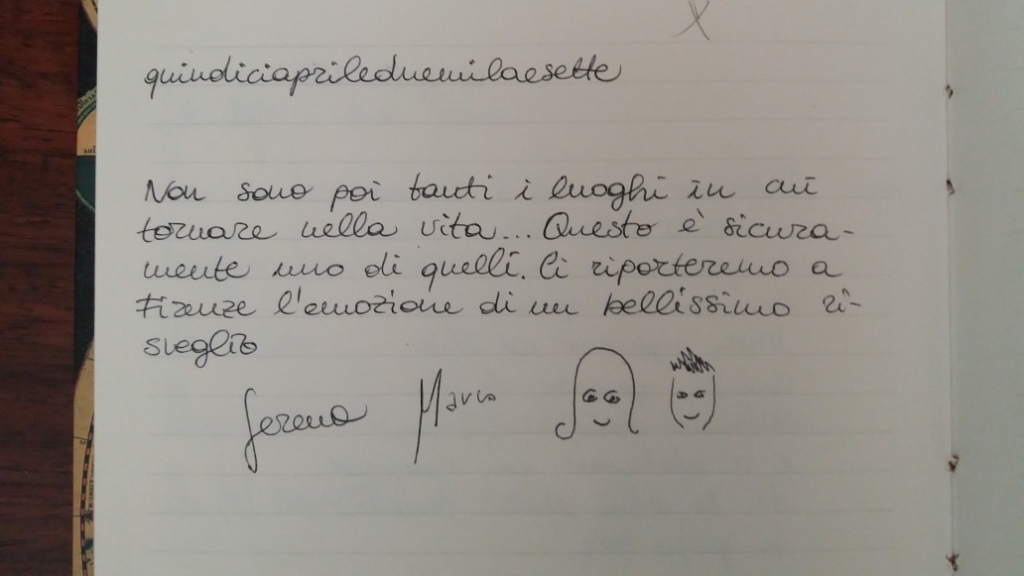 quindiciaprileduemilaesette
Non sono poi tanti i luoghi in cui
tornare nella vita... Questo è sicura-
mente uno di quelli. Ci riporteremo a
Firenze l'emozione di un bellissimo ri-
sveglio
Serena Marco